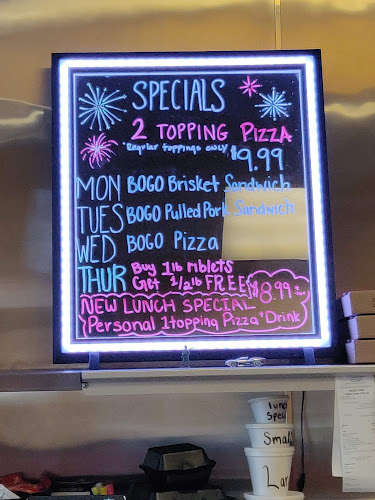 SPECIALS
2 TOPPING PIZZA
*Regular toppings only $9.99
MON BOGO Brisket Sandwich
TUES BOGO Pulled Pork Sandwich
WED BOGO Pizza
THUR Buy 1lb riblets
Get 1/2lb FREE
NEW LUNCH SPECIAL $8.99
Personal 1topping Pizza + Drink
lunch
Small